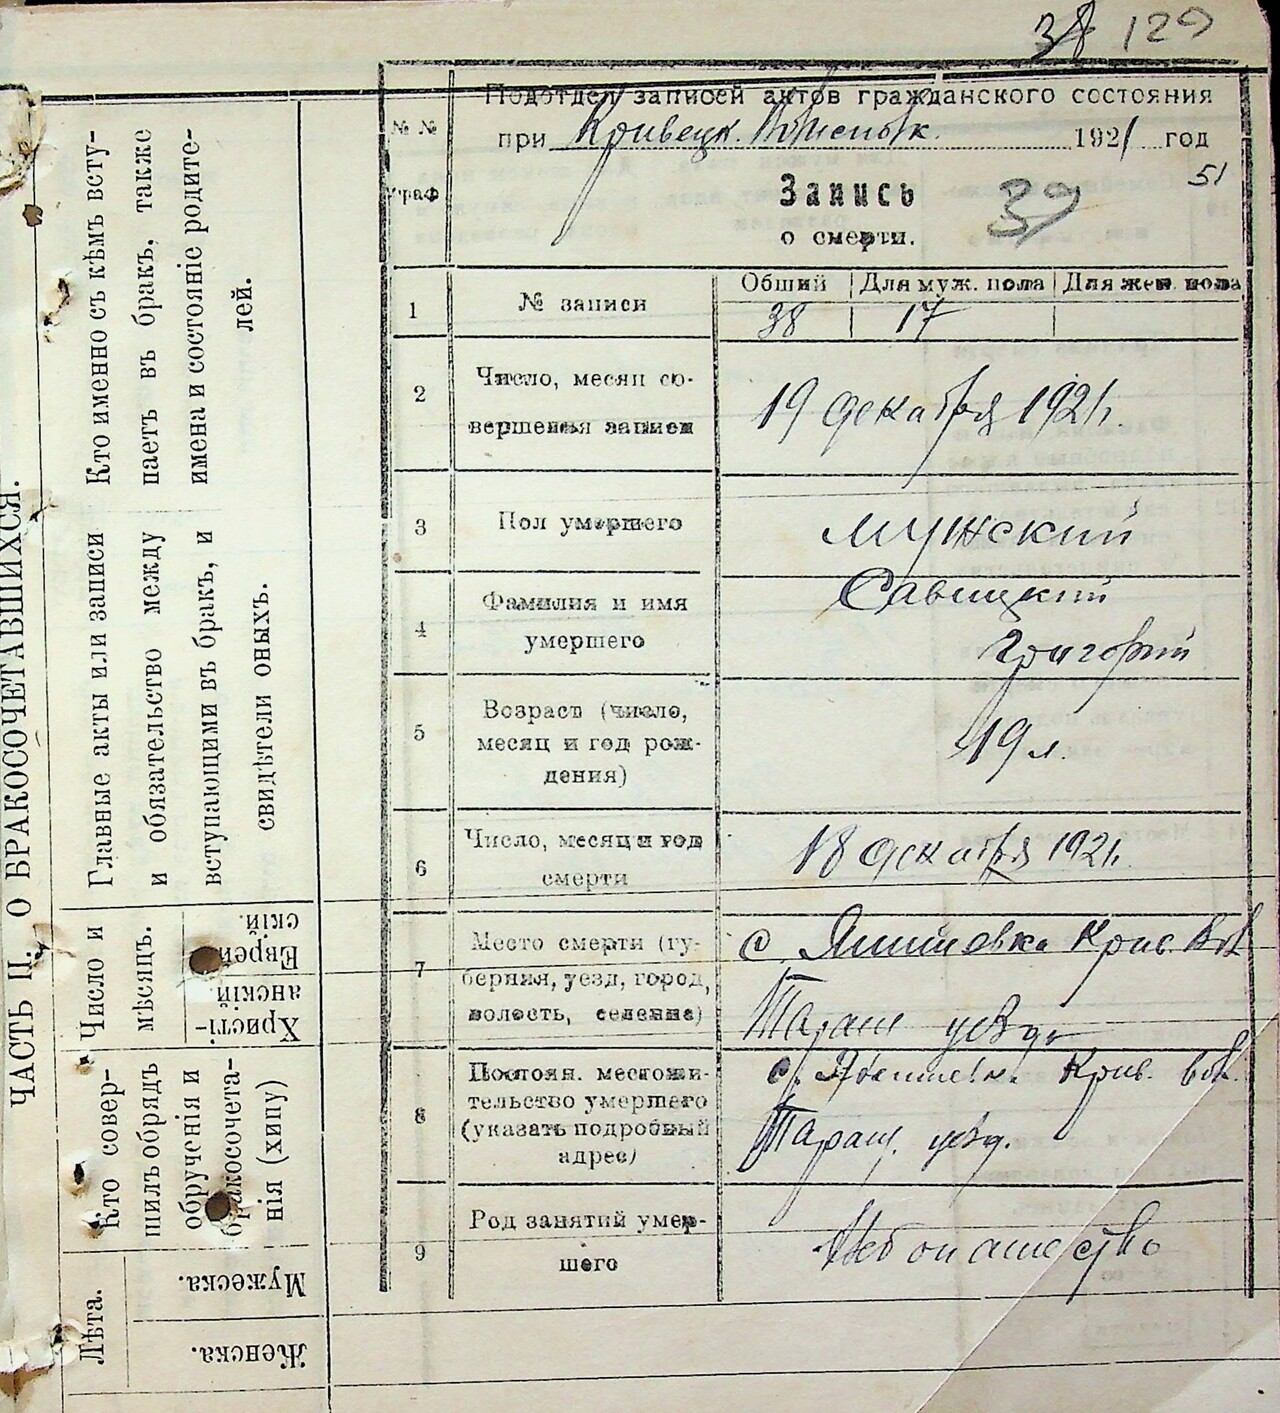 38 129
Подотдел записей актов гражданского состояния
№ №
граф
при Кривецк. Волисполк. 1921 год
51
Запись
39
о смерти.
1 № записи Общий Для муж. пола Для жен. пола
38 17
2 Число, месяц со-
вершения записи
19 декабря 1921 г.
3 Пол умершего мужский
4 Фамилия и имя
умершего
Савицкий
Григорий
5 Возраст (число,
месяц и год рож-
дения)
19 л.
6 Число, месяц и год
смерти
18 декабря 1921 г.
7 Место смерти (гу-
берния, уезд, город,
волость, селение)
с. Крив. Вол.
Таращ уезда
8 Постоян. местожи-
тельство умершего
(указать подробный
адрес)
с. Крив. вол.
Таращ. уезд.
9 Род занятий умер-
шего
ЧАСТЬ II. О БРАКОСОЧЕТАВШИХСЯ.
Кто именно съ кѣмъ всту-
паетъ въ бракъ, также
имена и состояніе родите-
лей.
Главные акты или записи
и обязательство между
вступающими въ бракъ, и
свидѣтели оныхъ.
Число и
мѣсяцъ.
Христі-
анскій
Еврей-
скій.
Кто совер-
шилъ обрядъ
обрученія и
бракосочета-
нія (хипу)
Лѣта.
Мужеска.
Женска.